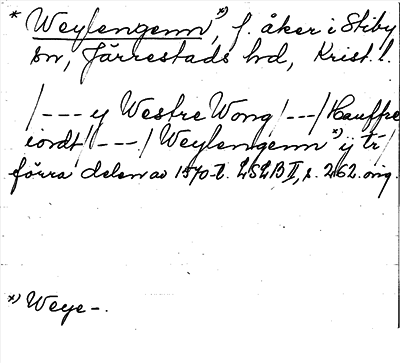 * Weylengenn *), f. åker i Stiby
sn, Järrestads hd, Krist. l.
/--- y Westre Wong /---/ Hauffre
iordt /---/ Weylengenn *) ÿ tr/
förra delen av 1570-t. LSLB II, s. 262. orig.
*) Weye-.